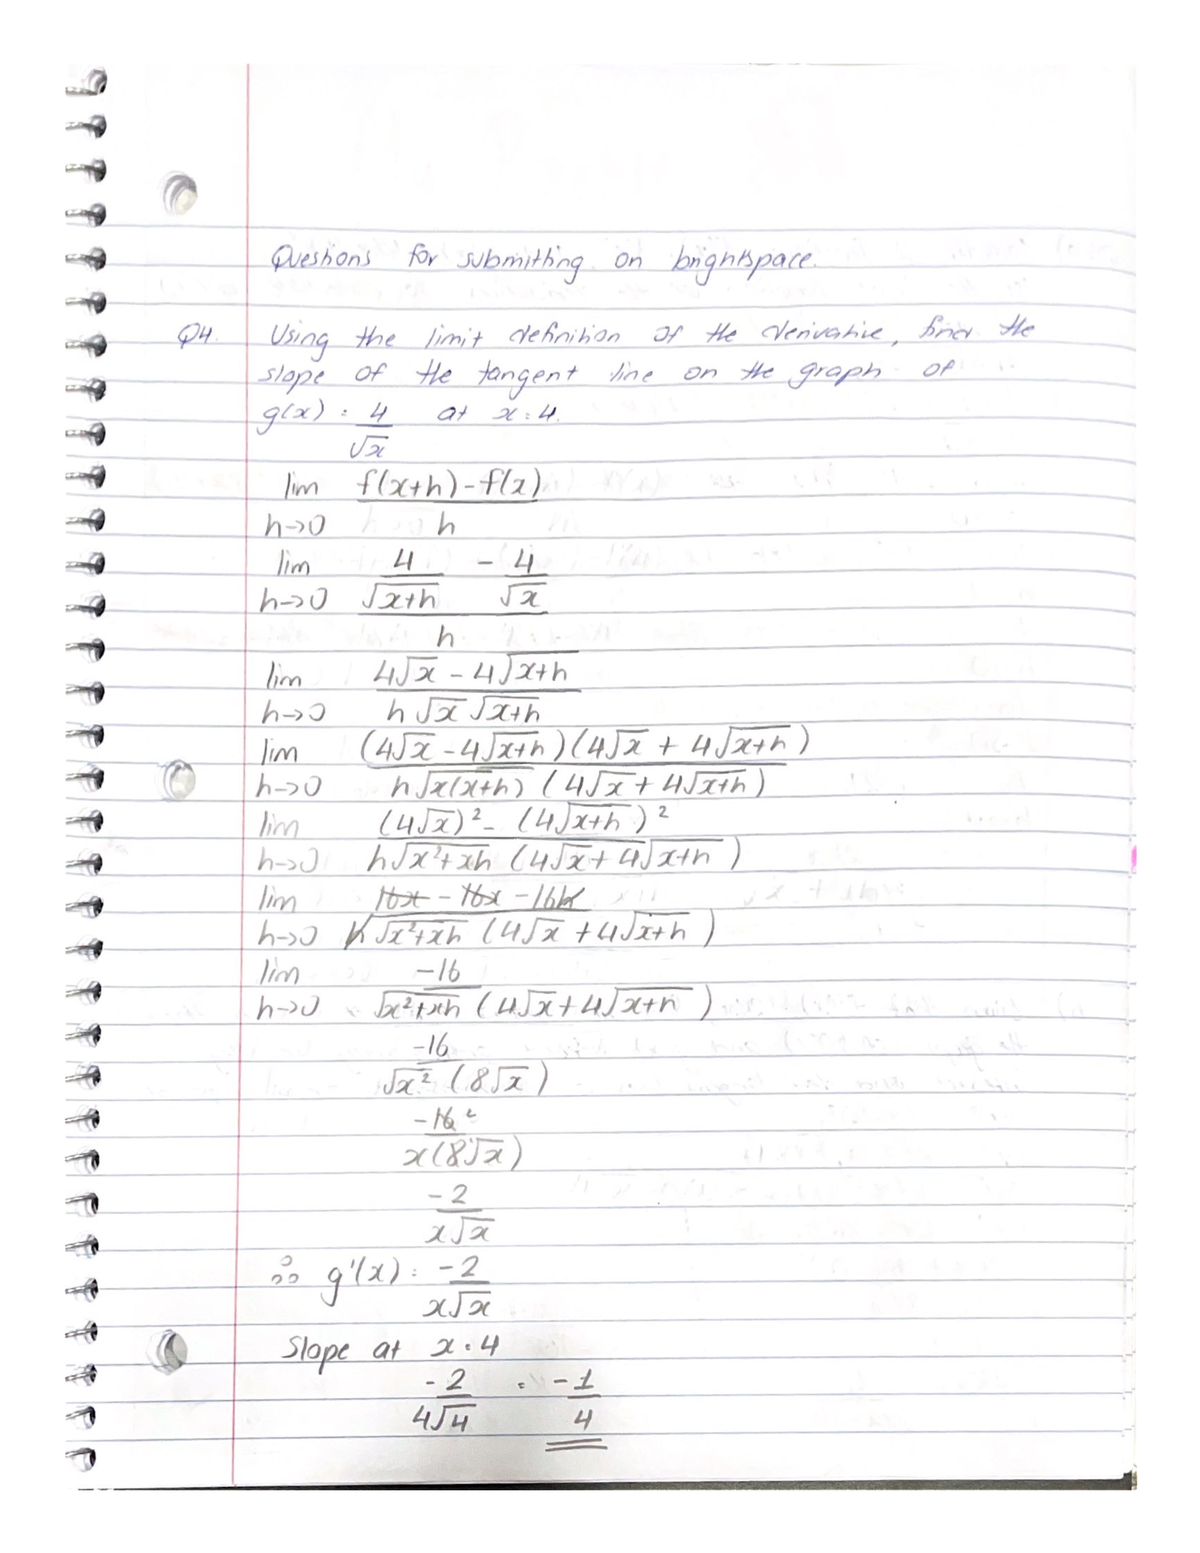 Questions for submitting on brightspace.
Q4. Using the limit definition of the derivative, find the
slope of the tangent line on the graph of
g(x) = 4/√x at x = 4.
lim h→0 (f(x+h) - f(x))/h
lim h→0 (4/√(x+h) - 4/√x)/h
lim h→0 (4√x - 4√(x+h))/(h√x √(x+h))
lim h→0 ((4√x - 4√(x+h))(4√x + 4√(x+h)))/(h√(x(x+h)) (4√x + 4√(x+h)))
lim h→0 ((4√x)² - (4√(x+h))²)/(h√(x²+xh) (4√x + 4√(x+h)))
lim h→0 (16x - 16x - 16h)/(h√(x²+xh) (4√x + 4√(x+h)))
lim h→0 -16/(√(x²+xh) (4√x + 4√(x+h)))
-16/(√x² (8√x))
-16 2/(x(8√x))
-2/(x√x)
∴ g'(x) = -2/(x√x)
Slope at x = 4
-2/(4√4) = -1/4